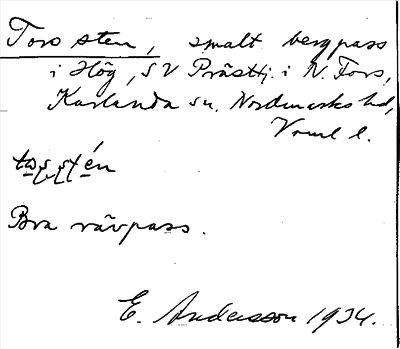 Torssten, smalt bergpass
i Hög, SV Prästtj. i N. Fors,
Karlanda sn. Nordmarks hd,
Vrml l.
Bra rävpass.
E. Andersson 1934.